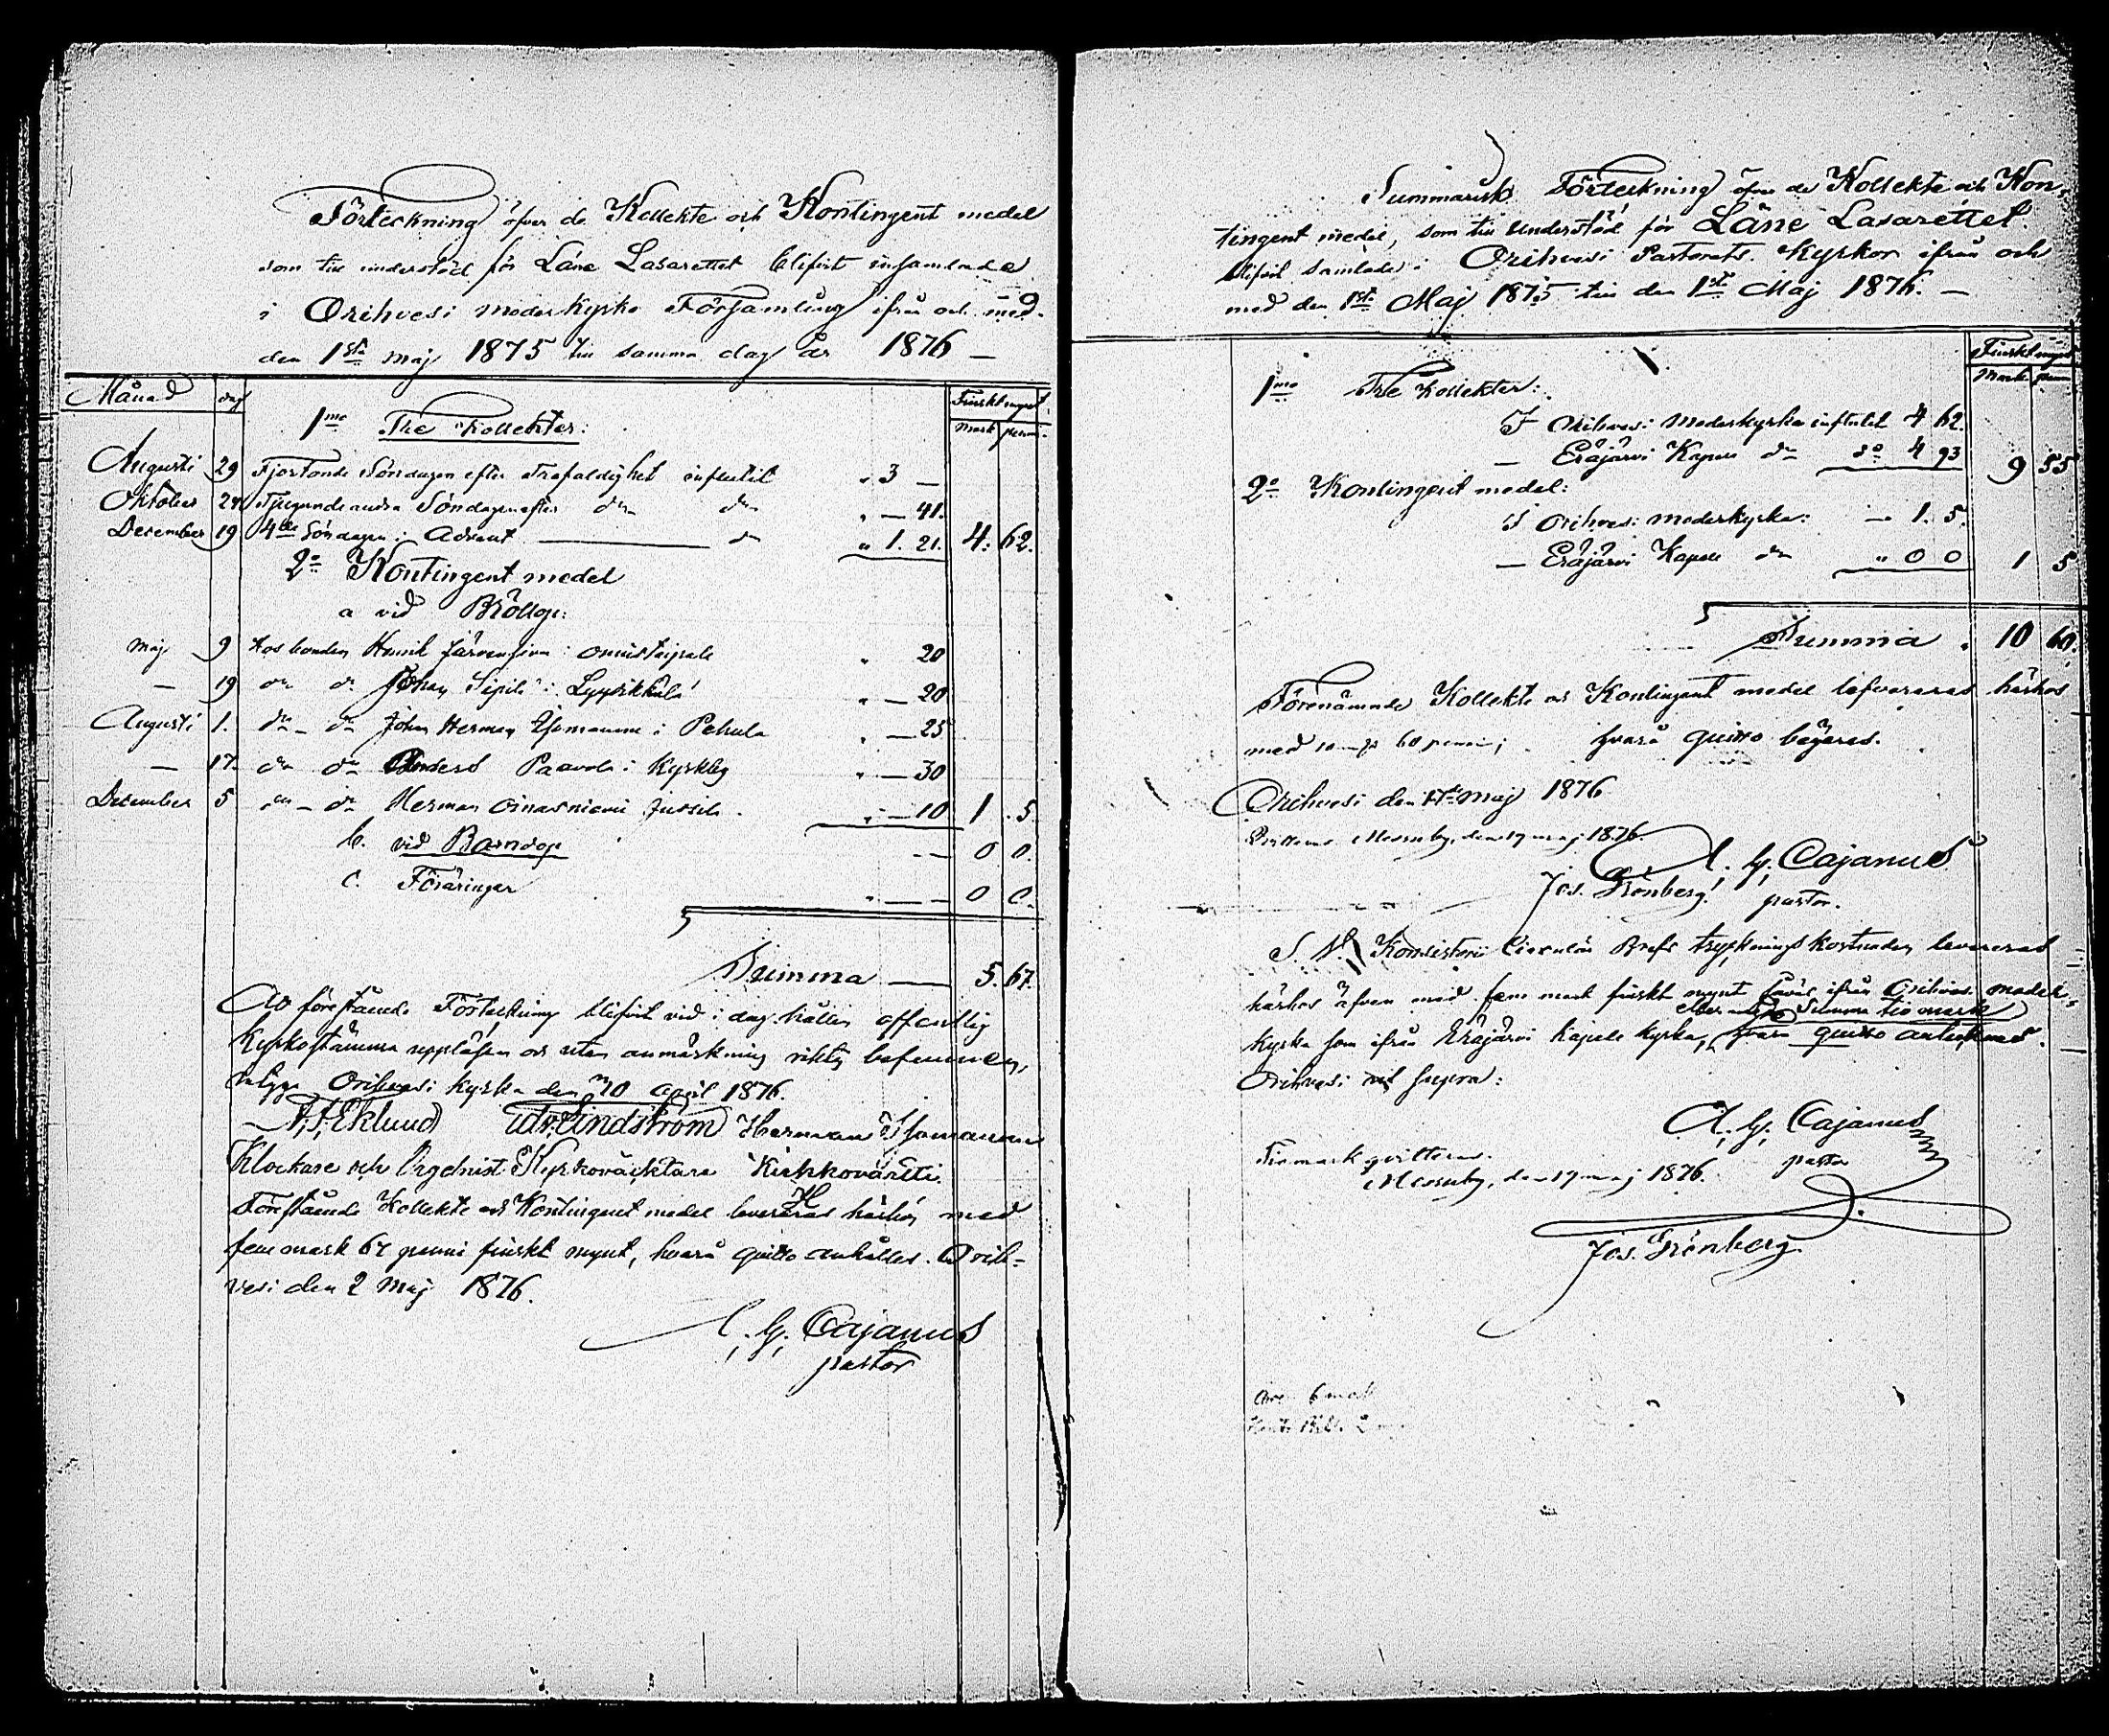 Förteckning öfver de Kollekte och Kontingent medel
som till understöd för Läne Lasarettet blifvit insamlade
i Orihvesi moderkyrko Församling ifrån och med
den 1sta Maj 1875 till samma dag år 1876 —
Månad dag Finskt mynt
Mark penni
1mo Tre Kollekter:
Augusti 29 Fjortonde Söndagen efter Trefaldighet influtit " 3 —
Oktober 24 Tjugundeandra Söndagen efter do do " — 41.
December 19 4de Söndagen i Advent — do " 1. 21. 4. 62.
2o Kontingent medel
a vid Bröllop:
Maj 9 Hos bonden Henrik Järvensivu i Onnistaipale " 20
— 19 do do Johan Sipilä i Lyytikkälä " — 20
Augusti 1. do — do Johan Herman Ihamanen i Pehula " — 25
— 17. do do Anders Paavola i Kyrkby " — 30
December 5 do — do Herman Oinasniemi Jussila " — 10 1 . 5.
b. vid Barndop — 0 0.
c. Föräringar " — — 0 0.
Summa — 5. 67.
At förestående Förteckning blifvit vid i dag hållen offentlig
Kyrkostämma uppläsen och utan anmärkning riktig befunnen,
intyga Orihvesi Kyrka den 30 April 1876.
F. F. Eklund Edv. Lindström Herman Ihamanen
Klockare och Orgelnist Kyrkoväcktare Kirkkovärtti
Förestående Kollekte och Kontingent medel levereras härhos med
fem mark 67 penni finskt mynt, hvarå quitto anhålles. Orih-
vesi den 2 Maj 1876.
A. G. Cajanus
pastor
Summarisk Förteckning öfver de Kollekte och Kon-
tingent medel, som till understöd för Läne Lasarettet
blifvit samlade i Orihvesi Pastorats Kyrkor ifrån och
med den 1sta Maj 1875 till den 1sta Maj 1876. —
Finskt mynt
Mark penni
1mo Tre Kollekter:
I Orihvesi Moderkyrka influtit 4 62.
— Eräjärvi Kapell do do 4 93 9 55
2o Kontingent medel:
I Orihvesi moderkyrka: — 1. 5.
— Eräjärvi Kapell do " 0 0 1 5
Summa . 10 60.
Förenämnde Kollekte och Kontingent medel lefvereras härhos
med 10 mk 60 penni; hvarå quitto begäres.
Orihvesi den 17de Maj 1876
Qvitteras Messuby, den 17 maj 1876.
A. G. Cajanus
Jos. Grönberg. pastor.
S. D. Konsistorii Cirkulär Brefs tryckningskostnaden levereras
härhos äfven med fem mark finskt mynt såväl ifrån Orihvesi moder-
eller Summa tio mark
kyrka som ifrån Eräjärvi Kapell kyrka, hvarå quitto anteknas.
Orihvesi ut supra:
A. G. Cajanus
pastor
Tio mark qvitteras.
Messuby, den 17 maj 1876.
Jos. Grönberg.
6 mark